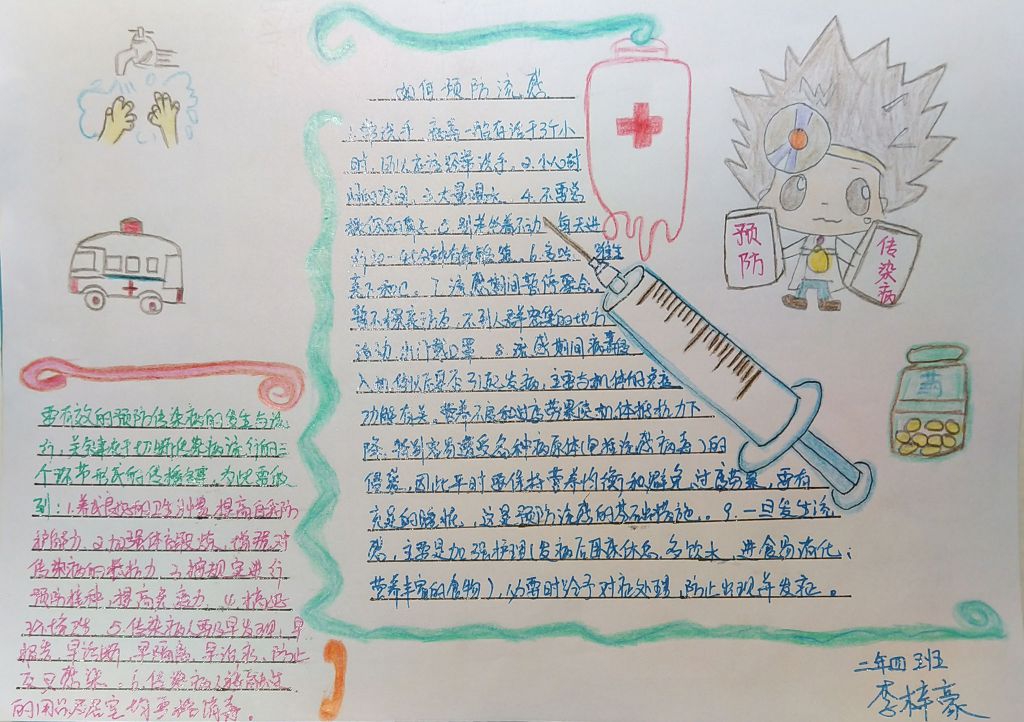 如何预防流感
1.勤洗手,病毒一般存活于3个小
时,因以应该经常洗手。2.小人时
的空间 3.大量喝水 4.不要总
5.别老坐着不动,每天进
行30-45分钟有氧锻炼。6.多吃 维生
7.流感期间暂停聚会,
暂不探亲访友,不到人群密集的地方
活动,出门戴口罩 8.流感期间病毒侵
入机体以后要不引起发病,主要与机体的免疫
功能有关,营养不良和过度劳累使机体抵抗力下
降,特别容易遭受各种病原体(包括流感病毒)的
侵袭,因此平时要保持营养均衡和避免过度劳累,要有
充足的睡眠,这是预防流感的基本措施。9.一旦发生流
感,主要是加强护理(发病后卧床休息,多饮水,进食易消化,
营养丰富的食物),必要时给予对症处理,防止出现并发症。
预防
传染病
药
要有效的预防传染病的发生与流
行,关键在于切断传染病流行的三
个环节形式和传播,为此要做
到:1.养成良好的卫生习惯,提高自我防
护能力 2.加强体育锻炼,增强对
传染病的抵抗力 3.按规定进行
预防接种,提高免疫力 4.搞好
环境 5.传染病人要及早发现,早
报告,早诊断,早隔离,早治疗,防止
交叉感染 6.传染病人接触过
的用品及居室均要消毒。
二年四班
李梓豪